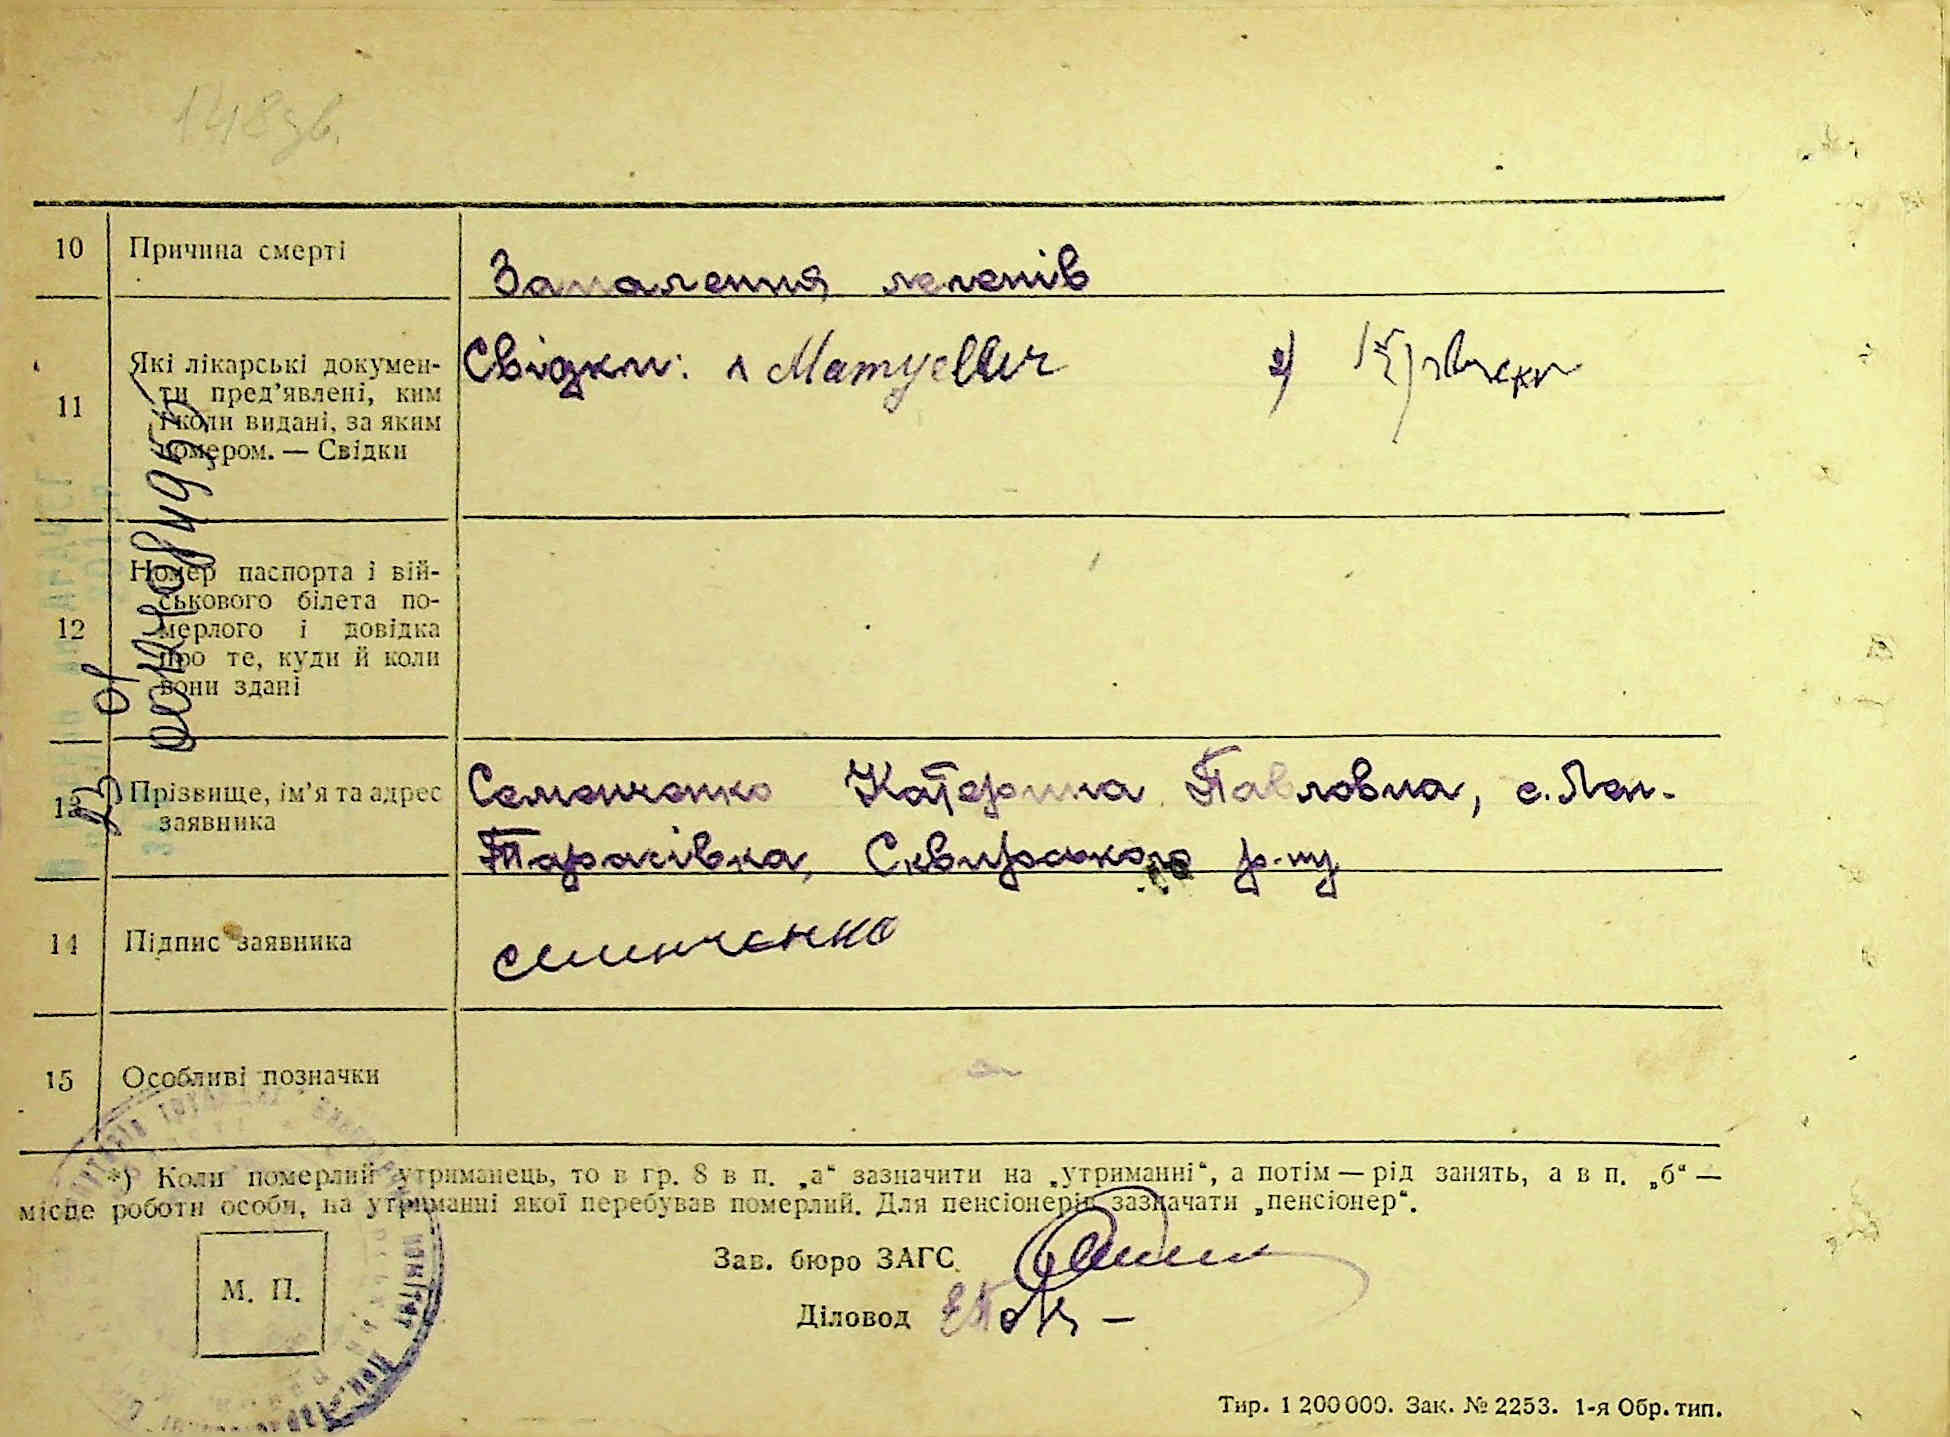 148зв.
10 Причина смерті
Запалення легенів
11 Які лікарські докумен-
ти пред’явлені, ким
і коли видані, за яким
номером. — Свідки
Свідки: 1 2)
12 Номер паспорта і вій-
ськового білета по-
мерлого і довідка
про те, куди й коли
вони здані
13 Прізвище, ім’я та адрес
заявника
Семенченко Катерина Павловна, с. Лен.
Тарасівка, Сквирського р-ну
14 Підпис заявника
семинченко
15 Особливі позначки
*) Коли померлий утриманець, то в гр. 8 в п. „а“ зазначити на „утриманні“, а потім — рід занять, а в п. „б“ —
місце роботи особи, на утриманні якої перебував померлий. Для пенсіонерів зазначати „пенсіонер“.
М. П.
Зав. бюро ЗАГС
Діловод
Тир. 1 200 000. Зак. № 2253. 1-я Обр. тип.